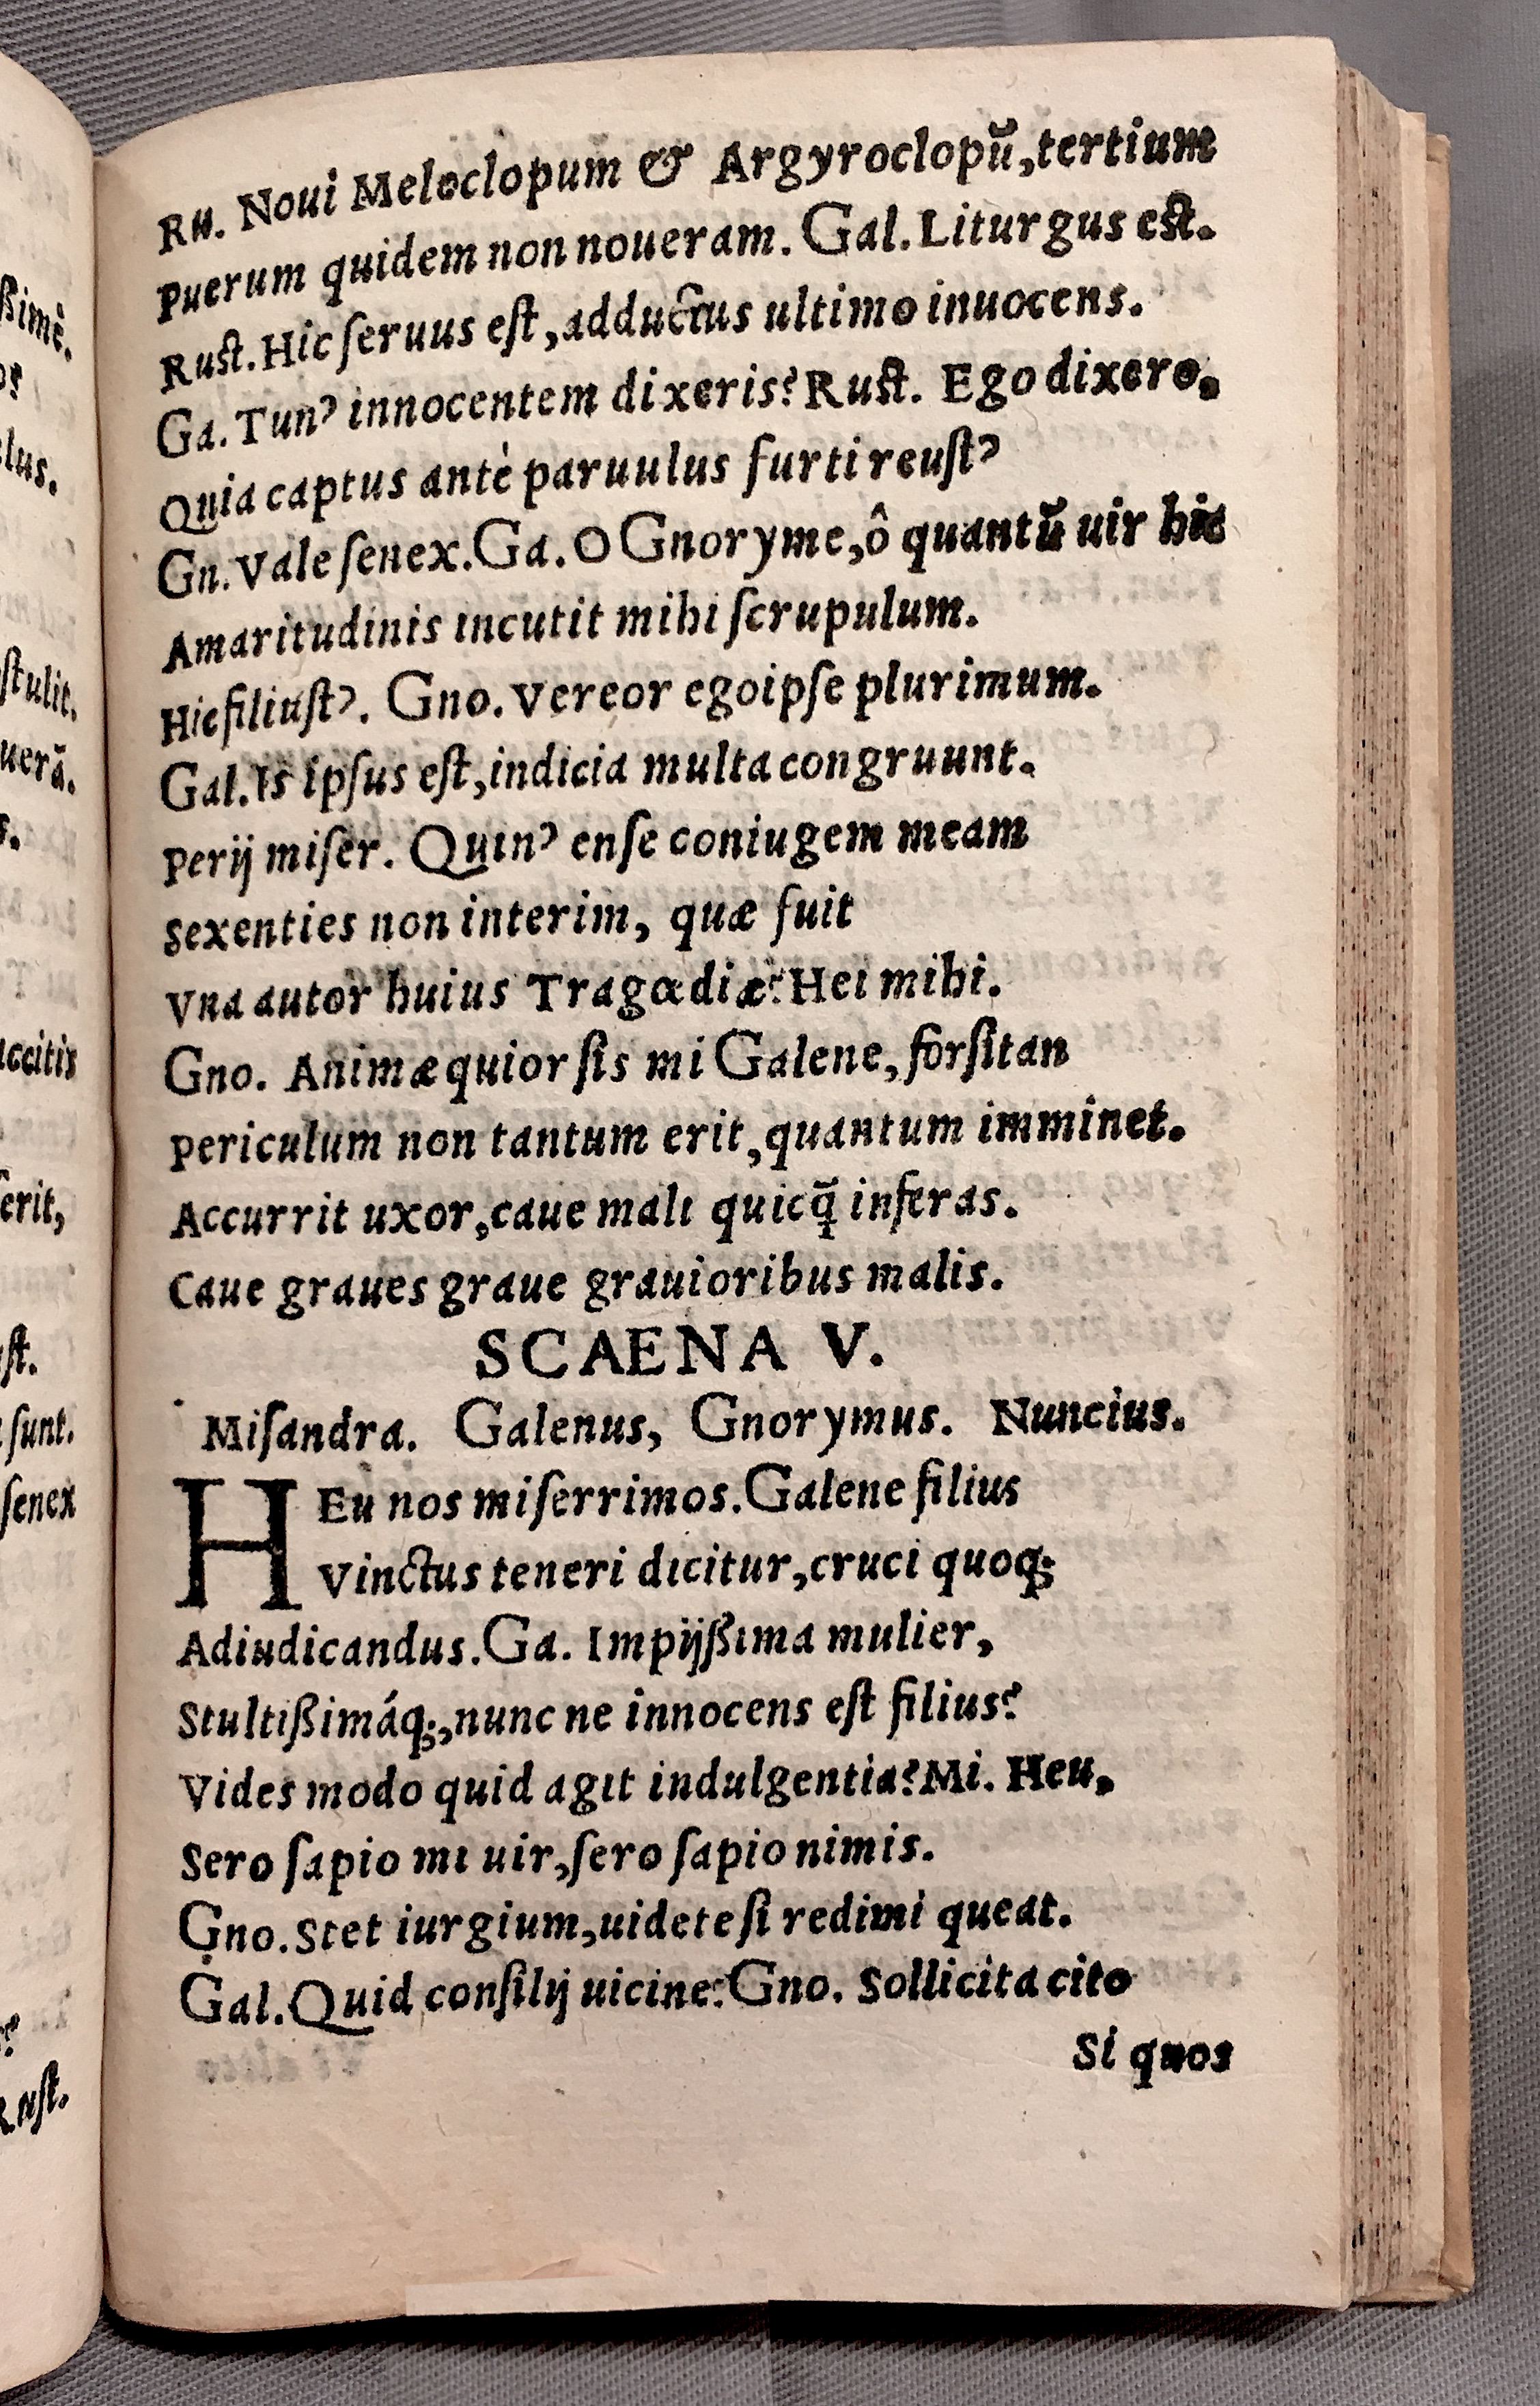 ßimè.
lus.
ſtulit.
uerã.
s.
accitis
erit,
ſt.
ſunt.
ſenex
Ruſt.
Ru. Noui Meleclopum & Argyroclopũ, tertium
Puerum quidem non noueram. Gal. Liturgus est.
Ruſt. Hic ſeruus eſt, adductus ultimo inuocens.
Ga. Tun' innocentem dixeris? Ruſt. Ego dixero,
Quia captus antè paruulus furti reuſt'
Gn. Vale ſenex. Ga. O Gnoryme, ô quantũ uir hic
Amaritudinis incutit mihi ſcrupulum.
Hic filiuſt'. Gno. Vereor egoipſe plurimum.
Gal. Is ipſus eſt, indicia multa congruunt.
Perij miſer. Quin' enſe coniugem meam
Sexenties non interim, quæ fuit
Vna autor huius Tragœdiæ? Hei mihi.
Gno. Animæquior ſis mi Galene, forſitan
Periculum non tantum erit, quantum imminet.
Accurrit uxor, caue mali quicq̃ inferas.
Caue graues graue grauioribus malis.
SCAENA V.
Miſandra. Galenus, Gnorymus. Nuncius.
HEu nos miſerrimos. Galene filius
Vinctus teneri dicitur, cruci quoq;
Adiudicandus. Ga. Impijßima mulier,
Stultißimáq;, nunc ne innocens eſt filius?
Vides modo quid agit indulgentia? Mi. Heu,
Sero ſapio mi uir, ſero ſapio nimis.
Gno. Stet iurgium, uidete ſi redimi queat.
Gal. Quid conſilij uicine? Gno. Sollicita cito
Si quos